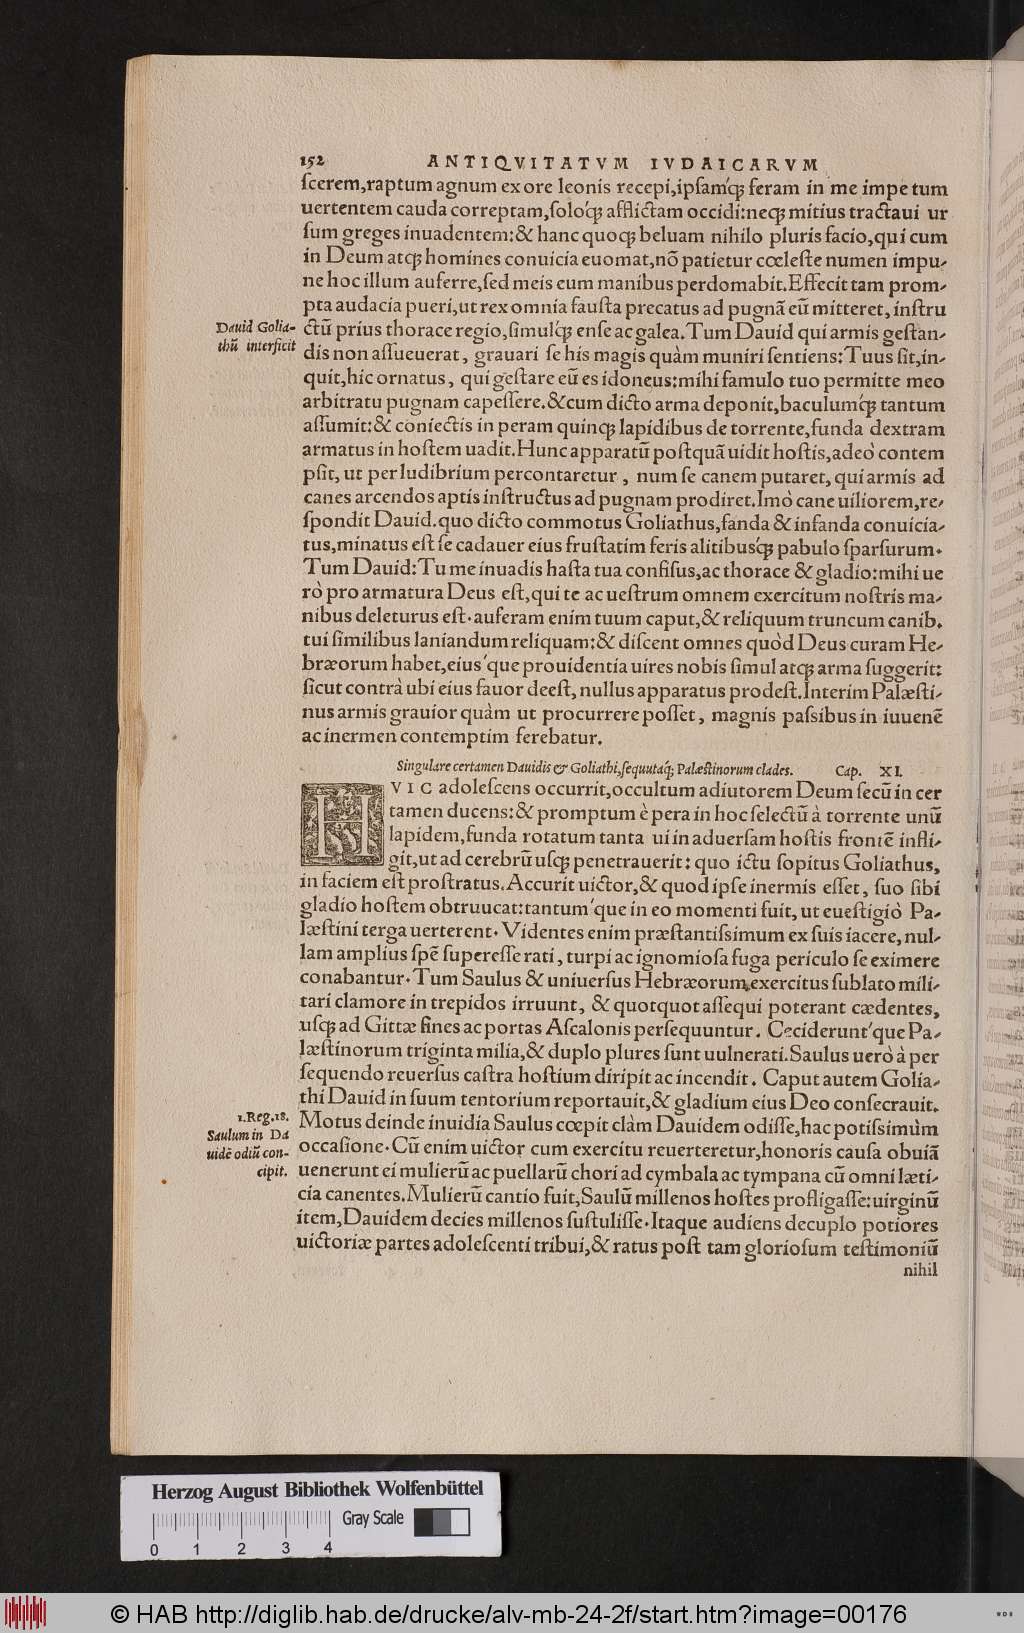 152 ANTIQVITATVM IVDAICARVM
ſcerem,raptum agnum ex ore leonis recepi,ipſamq́ꝫ feram in me impetum
uertentem cauda correptam,ſoloq́ꝫ afflictam occidi:neqꝫ mitius tractaui ur
ſum greges inuadentem:& hanc quoqꝫ beluam nihilo pluris facio,qui cum
in Deum atqꝫ homines conuicia euomat,nõ patietur cœleſte numen impu-
ne hoc illum auferre,ſed meis eum manibus perdomabit.Effecit tam prom-
pta audacia pueri,ut rex omnia fauſta precatus ad pugnã eũ mitteret,inſtru
Dauid Golia-
thũ interficit
ctũ prius thorace regio,ſimulq́ꝫ enſe ac galea.Tum Dauid qui armis geſtan-
dis non aſſueuerat, grauari ſe his magis quàm muniri ſentiens:Tuus ſit,in-
quit,hic ornatus, qui geſtare eũ es idoneus:mihi famulo tuo permitte meo
arbitratu pugnam capeſſere.&cum dicto arma deponit,baculumq́ꝫ tantum
aſſumit:& coniectis in peram quinqꝫ lapidibus de torrente,funda dextram
armatus in hoſtem uadit.Hunc apparatũ poſtquã uidit hoſtis,adeò contem
pſit, ut per ludibrium percontaretur, num ſe canem putaret, qui armis ad
canes arcendos aptis inſtructus ad pugnam prodiret.Imò cane uiliorem,re-
ſpondit Dauid.quo dicto commotus Goliathus,fanda & infanda conuicia-
tus,minatus eſt ſe cadauer eius fruſtatim feris alitibusq́ꝫ pabulo ſparſurum.
Tum Dauid:Tu me inuadis haſta tua confiſus,ac thorace & gladio:mihi ue
rò pro armatura Deus eſt,qui te ac ueſtrum omnem exercitum noſtris ma-
nibus deleturus eſt.auferam enim tuum caput,& reliquum truncum canib.
tui ſimilibus laniandum reliquam:& diſcent omnes quòd Deus curam He-
bræorum habet,eius'que prouidentia uires nobis ſimul atqꝫ arma ſuggerit:
ſicut contrà ubi eius fauor deeſt, nullus apparatus prodeſt.Interim Palæſti-
nus armis grauior quàm ut procurrere poſſet, magnis paſsibus in iuuenẽ
ac inermen contemptim ferebatur.
Singulare certamen Dauidis & Goliathi,ſequutaq́ꝫ Palæſtinorum clades. Cap. XI.
HVIC adoleſcens occurrit,occultum adiutorem Deum ſecũ in cer
tamen ducens:& promptum è pera in hoc ſelectũ à torrente unũ
lapidem,funda rotatum tanta ui in aduerſam hoſtis frontẽ infli-
git,ut ad cerebrũ uſqꝫ penetrauerit: quo ictu ſopitus Goliathus,
in faciem eſt proſtratus.Accurit uictor,& quod ipſe inermis eſſet, ſuo ſibi
gladio hoſtem obtruucat:tantum'que in eo momenti fuit, ut eueſtigiò Pa-
læſtini terga uerterent. Videntes enim præſtantiſsimum ex ſuis iacere, nul-
lam amplius ſpẽ ſupereſſe rati, turpi ac ignomioſa fuga periculo ſe eximere
conabantur. Tum Saulus & uniuerſus Hebræorum exercitus ſublato mili-
tari clamore in trepidos irruunt, & quotquot aſſequi poterant cædentes,
uſqꝫ ad Gittæ fines ac portas Aſcalonis perſequuntur. Ceciderunt'que Pa-
læſtinorum triginta milia,& duplo plures ſunt uulnerati.Saulus uerò à per
ſequendo reuerſus caſtra hoſtium diripit ac incendit. Caput autem Golia-
thi Dauid in ſuum tentorium reportauit,& gladium eius Deo conſecrauit.
1.Reg.18.
Saulum in Da
uidẽ odiũ con-
cipit.
Motus deinde inuidia Saulus cœpit clàm Dauidem odiſſe,hac potiſsimùm
occaſione. Cũ enim uictor cum exercitu reuerteretur,honoris cauſa obuiã
uenerunt ei mulierũ ac puellarũ chori ad cymbala ac tympana cũ omni læti-
cia canentes.Mulierũ cantio fuit,Saulũ millenos hoſtes profligaſſe:uirginũ
item,Dauidem decies millenos ſuſtuliſſe.Itaque audiens decuplo potiores
uictoriæ partes adoleſcenti tribui,& ratus poſt tam glorioſum teſtimoniũ
nihil
Herzog August Bibliothek Wolfenbüttel
Gray Scale
0 1 2 3 4
© HAB http://diglib.hab.de/drucke/alv-mb-24-2f/start.htm?image=00176